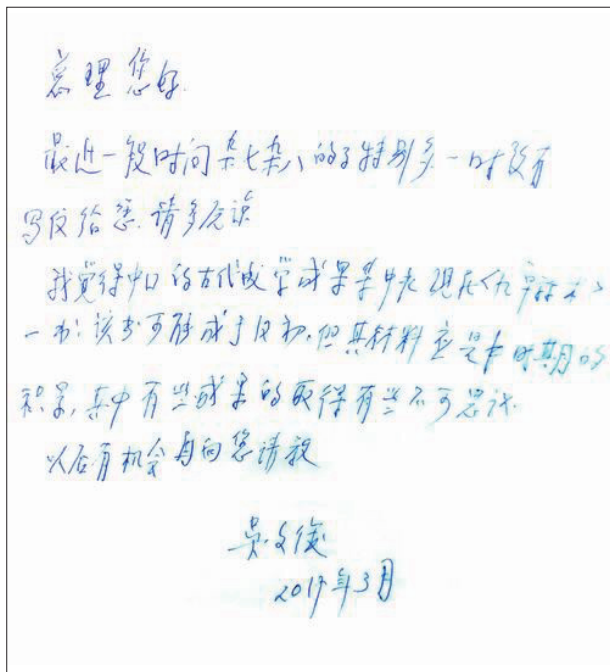 总理您好.
最近一段时间杂七杂八的事特别多一时没有
写信给您.请多原谅
我觉得中国的古代数学成果集中表现在《九章算术》
一书:该书可能成于汉初.但其材料应是长时期的
积累,其中有些成果的取得有些不可思议.
以后有机会再向您请教
吴文俊
年3月